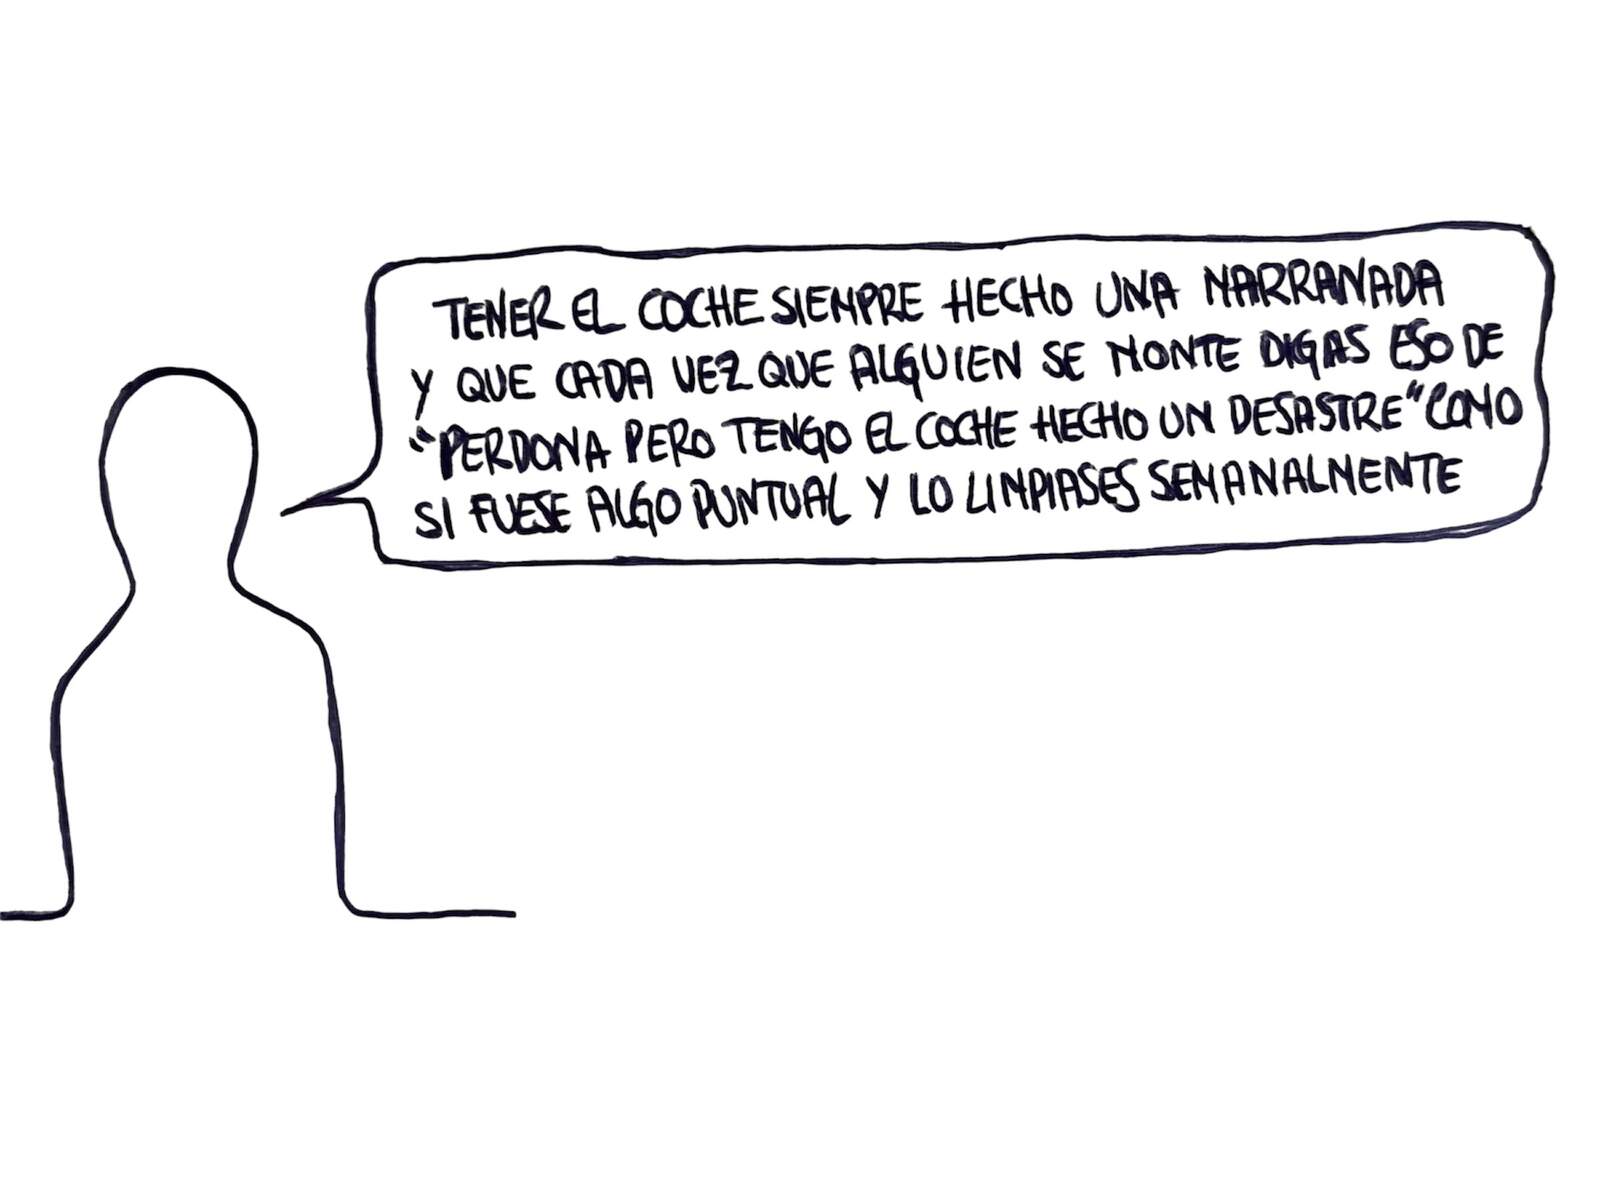 TENER EL COCHE SIEMPRE HECHO UNA MARRANADA
Y QUE CADA VEZ QUE ALGUIEN SE MONTE DIGAS ESO DE
"PERDONA PERO TENGO EL COCHE HECHO UN DESASTRE" COMO
SI FUESE ALGO PUNTUAL Y LO LIMPIASES SEMANALMENTE